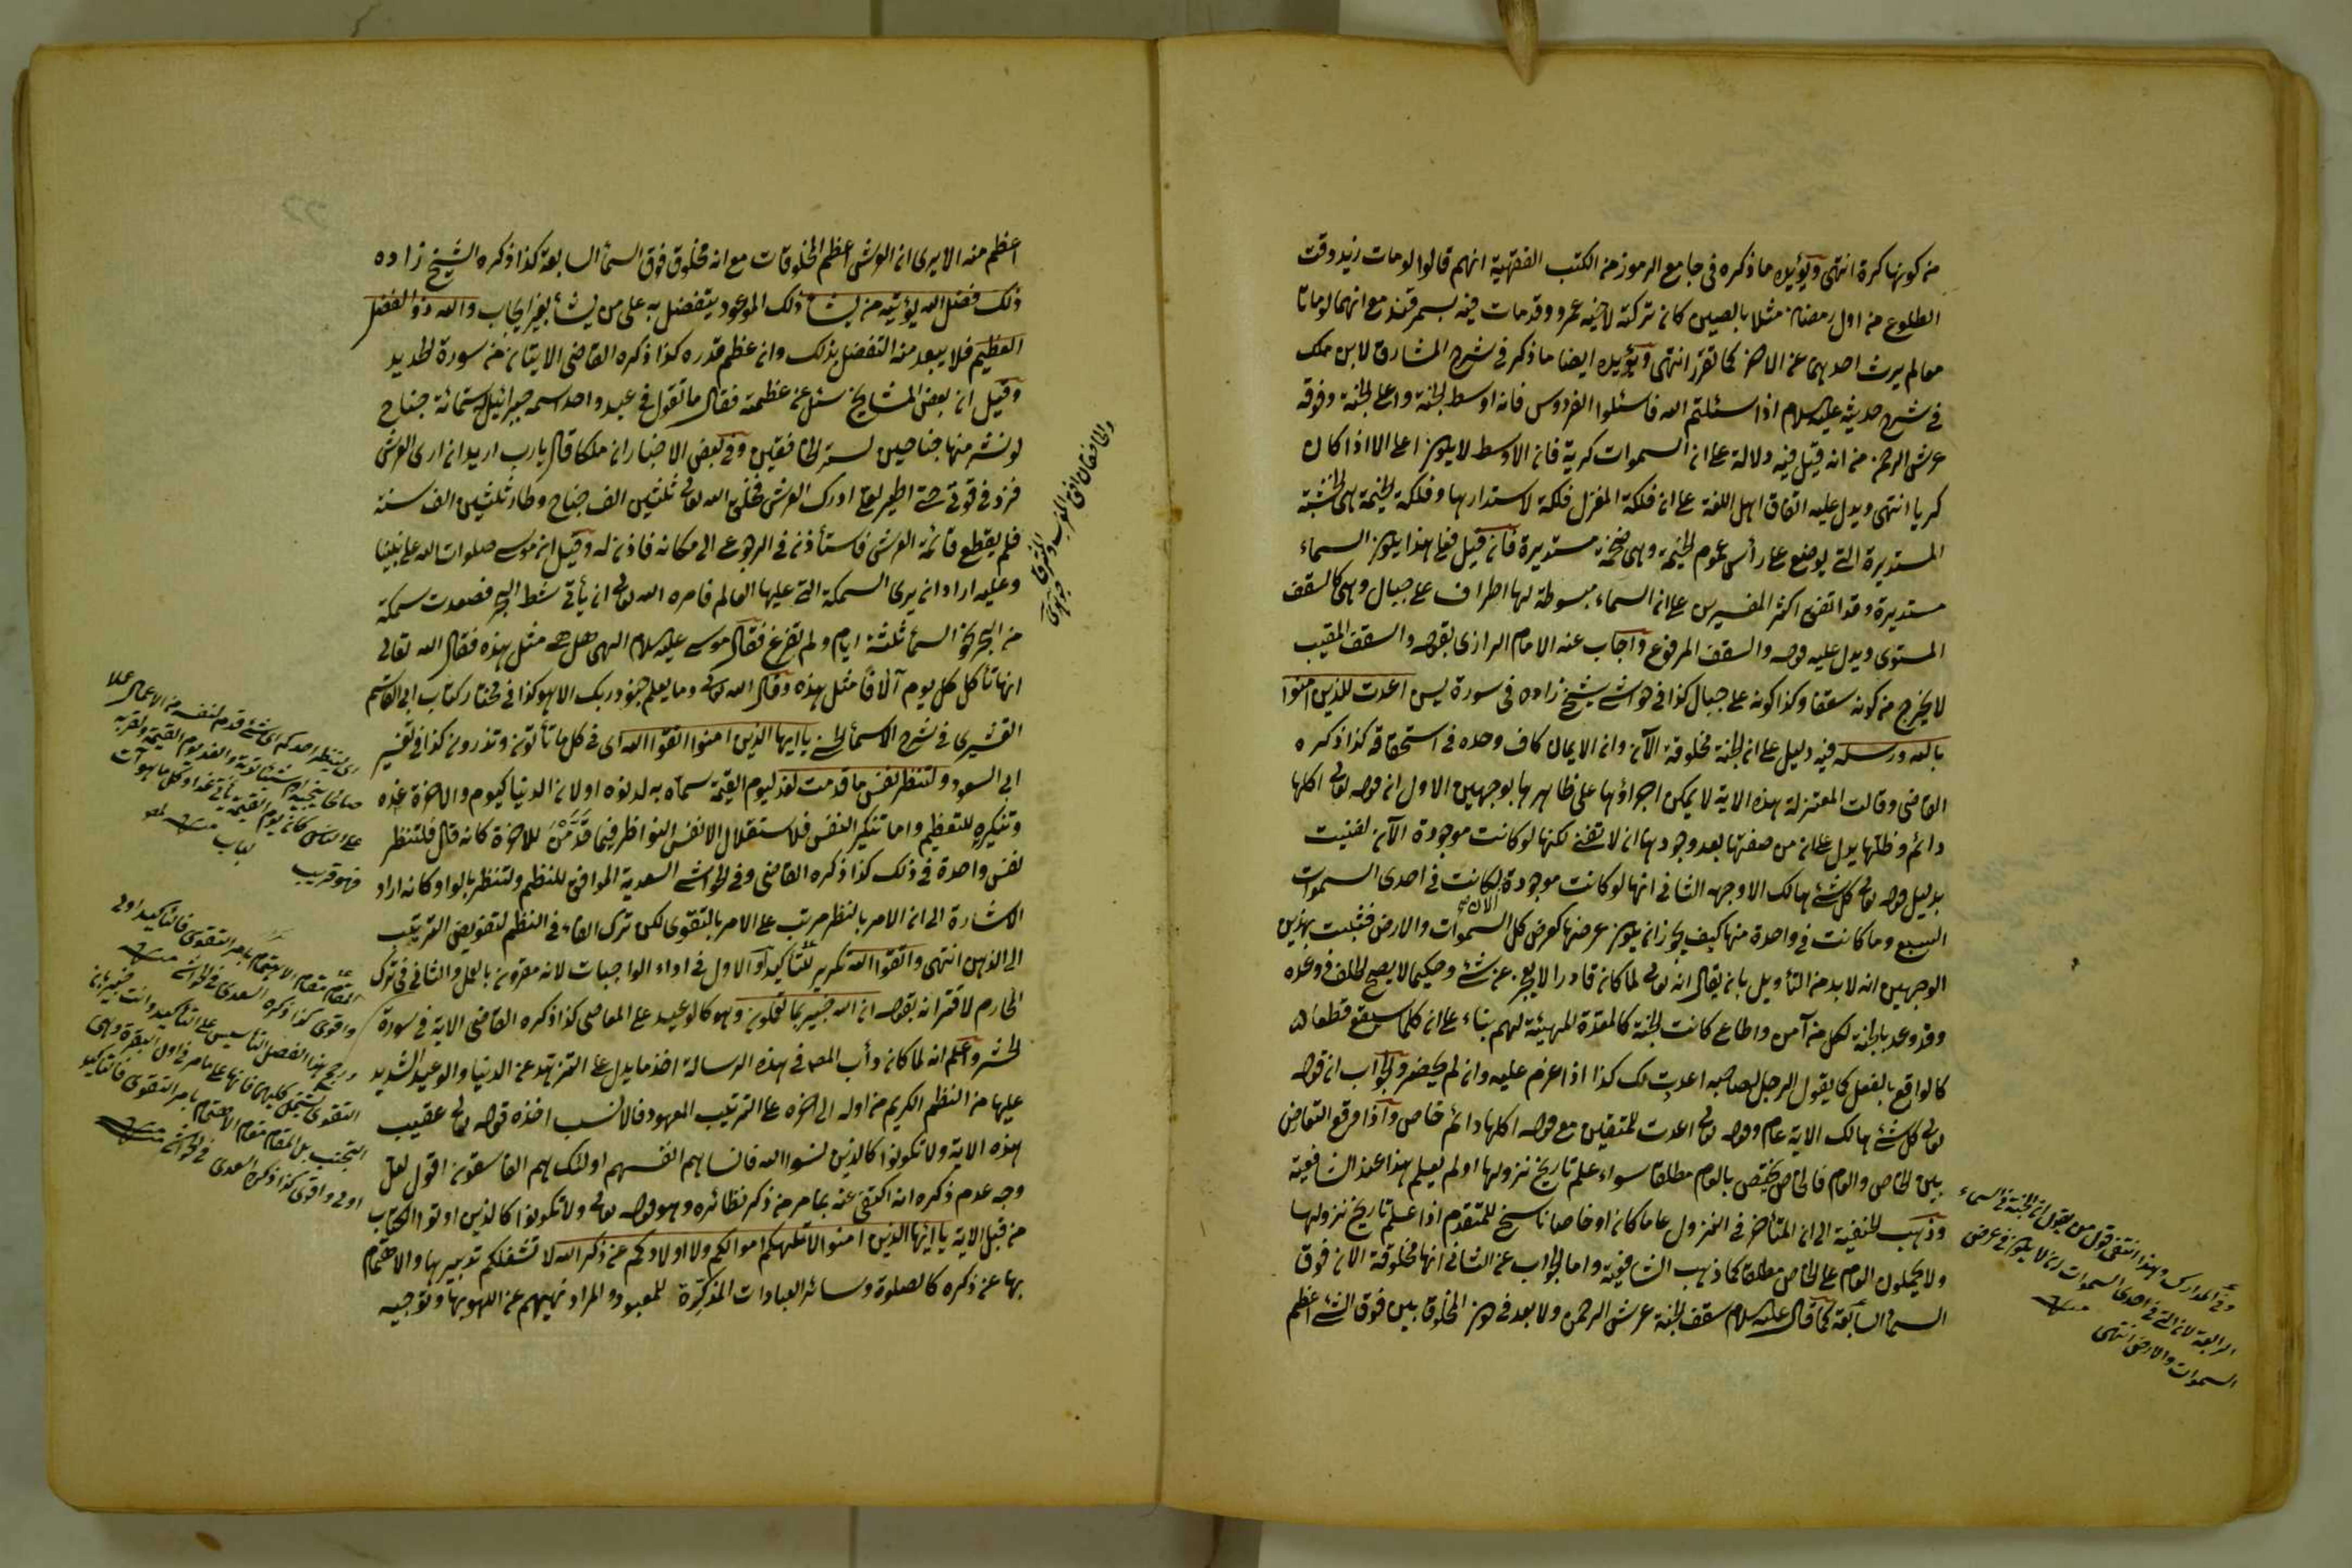 من كونها كرة انتهى ويؤيده ما ذكره فى جامع الرموز من الكتب الفقهية انهم قالوا لو مات زيد وقت
الطلوع من اول رمضان مثلا بالصين كان تركته لاخيه عمرو وقد مات فيه بسمرقند مع انهما لو ماتا
معا لم يرث احدهما عن الاخر كما تقرر انتهى ويؤيده ايضا ما ذكر فى شرح المشارق لابن ملك
فى شرح حديثه عليه السلام اذا سئلتم الله فاسئلوا الفردوس فانه اوسط الجنة واعلى الجنة وفوقه
عرش الرحمن من انه قيل فيه دلالة على ان السموات كرية فان الاوسط لا يكون اعلى الا اذا كان
كريا انتهى ويدل عليه اتفاق اهل اللغة على ان فلكة المغزل فلكة لاستدارها وفلكة الخيمة هى الخشبة
المستديرة التى يوضع على رأس عموم الخيمة وهى صخمة مستديرة فان قيل فعلى هذا يكون السماء
مستديرة وقد اتفق اكثر المفسرين على ان السماء مبسوطة لها اطراف على جبال وهى كالسقف
المستوى ويدل عليه قوله والسقف المرفوع واجاب عنه الامام الرازى بقوله والسقف المقبب
لا يخرج من كونه سقفا وكذا كونه على جبال كذا فى حواشى شيخ زاده فى سورة يس اعدت للذين امنوا
بالله ورسله فيه دليل على ان الجنة مخلوقة الآن وان الايمان كاف وحده فى استحقاقه كذا ذكره
القاضى وقالت المعتزلة هذه الاية لا يمكن اجراؤها على ظاهرها بوجهين الاول ان قوله تعالى اكلها
دائم وظلها يدل على ان من صفتها بعد وجودها ان لا تفنى لكنها لو كانت موجودة الآن لفنيت
بدليل قوله تعالى كل شئ هالك الا وجهه الثانى انها لو كانت موجودة الان لكانت فى احدى السموات
السبع وما كانت فى واحدة منها كيف يجوز ان يكون عرضها كعرض كل السموات والارض فثبت بهذين
الوجهين انه لابد من التأويل بان يقال انه تعالى لما كان قادرا لا يعجز عن شئ وحكيما لا يصح الخلف فى وعده
وقد وعد بالجنة لكل من آمن واطاع كانت الجنة كالمعدة المهيئة لهم بناء على ان كلما سيقع قطعا
كالواقع بالفعل كما يقول الرجل لصاحبه اعدت لك كذا اذا عزم عليه وان لم يحضر والجواب ان قوله
تعالى كل شئ هالك الاية عام وقوله تعالى اعدت للمتقين مع قوله اكلها دائم خاص واذا وقع التعارض
بين الخاص والعام فالخاص يختص بالعام مطلقا سواء علم تاريخ نزولها او لم يعلم هذا عند الشافعية
وذهب الحنفية الى ان المتأخر فى النزول عاما كان او خاصا ناسخ للمتقدم اذا علم تاريخ نزولها
ولا يحملون العام على الخاص مطلقا كما ذهب الشافعية واما الجواب عن الثانى انها مخلوقة الان فوق
السماء السابعة كما قال عليه السلام سقف الجنة عرش الرحمن ولا بعد فى كون المخلوق بين فوق الشئ اعظم
وفى المدارك وبهذا انتفى قول من يقول ان الجنة فى السماء
الرابعة لان التى فى احدى السموات لا يكون فى عرض
السموات والارض انتهى
اعظم منه الا يرى ان العرش اعظم المخلوقات مع انه مخلوق فوق السماء السابعة كذا ذكره الشيخ زاده
ذلك فضل الله يؤتيه من يشاء ذلك الموعود يتفضل به على من يشأ بغير ايجاب والله ذو الفضل
العظيم فلا يبعد منه التفضل بذلك وان عظم قدره كذا ذكره القاضى الايتان من سورة الحديد
وقيل ان بعض المشايخ سئل عن عظمته فقال ما تقول فى عبد واحد اسمه جبرائيل له ستمائة جناح
لو نشر منها جناحين لستر الخافقين وفى بعض الاخبار ان ملكا قال يا رب اريد ان ارى العرش
فزد فى قوتى حتى اطير لعلى ادرك العرش فخلق الله تعالى ثلثين الف جناح وطار ثلثين الف سنة
فلم يقطع قائمة العرش فاستأذن فى الرجوع الى مكانه فاذن له وقيل ان موسى صلوات الله على نبينا
وعليه اراد ان يرى السمكة التى عليها العالم فامره الله تعالى ان يأتى شط البحر فصعدت سمكة
من البحر نحو السماء ثلثة ايام ولم تفرغ فقال موسى عليه السلام الهى هل هى مثل هذه فقال الله تعالى
انها تأكل كل يوم آلافا مثل هذه وقال الله تعالى وما يعلم جنود ربك الا هو كذا فى مختار كتاب ابى القاسم
القشيرى فى شرح الاسماء الحسنى يا ايها الذين امنوا اتقوا الله اى فى كل ما تأتون وتذرون كذا فى تفسير
ابى السعود ولتنظر نفس ما قدمت لغد ليوم القيمة سماه به لدنوه او لان الدنيا كيوم والاخرة غده
وتنكيره للتعظيم واما تنكير النفس فلاستقلال الانفس النواظر فيما قدمن للاخرة كانه قال فلتنظر
نفس واحدة فى ذلك كذا ذكره القاضى وفى الحواشى السعدية الموافق للنظم ولتنظر بالواو وكانه اراد
الاشارة الى ان الامر بالنظر مرتب على الامر بالتقوى لكن ترك الفاء فى النظم لتفويض الترتيب
الى الذهن انتهى واتقوا الله تكرير للتأكيد او الاول فى اداء الواجبات لانه مقرون بالعمل والثانى فى ترك
المحارم لاقترانه بقوله ان الله خبير بما تعملون وهو كالوعيد على المعاصى كذا ذكره القاضى الاية فى سورة
الحشر واعلم انه لما كان دأب المصنف فى هذه الرسالة اخذ ما يدل على التزهد عن الدنيا والوعيد الشديد
عليها من النظم الكريم من اوله الى اخره على الترتيب المعهود فالانسب اخذه قوله تعالى عقيب
هذه الاية ولا تكونوا كالذين نسوا الله فانساهم انفسهم اولئك هم الفاسقون اقول لعل
وجه عدم ذكره انه اكتفى عنه بما مر من ذكر نظائره وهو قوله تعالى ولا تكونوا كالذين اوتوا الكتاب
من قبل الاية يا ايها الذين امنوا لا تلهكم اموالكم ولا اولادكم عن ذكر الله لا تشغلكم تدبيرها والاهتمام
بها عن ذكره كالصلوة وسائر العبادات المذكرة للمعبود والمراد نهيهم عن اللهو بها وتوجيه
والخافقان افق المغرب والمشرق
اى لينظر احدكم اى شئ قدم لنفسه من الاعمال عملا
على الناس كان يوم القيمة يأتى غدا وكل ما هو آت
فهو قريب لباب
المقام مقام الاهتمام بامر التقوى فالتأكيد اولى
واقوى كذا ذكره السعدى فى الحواشى
ورجح هذا الفضل التأسيس على التأكيد وانت خبير بان
التقوى تشتمل كليهما فانها على ما مر فى اول البقرة وهى
التجنب بل المقام مقام الاهتمام بامر التقوى فالتأكيد
اولى واقوى كذا ذكره السعدى فى الحواشى